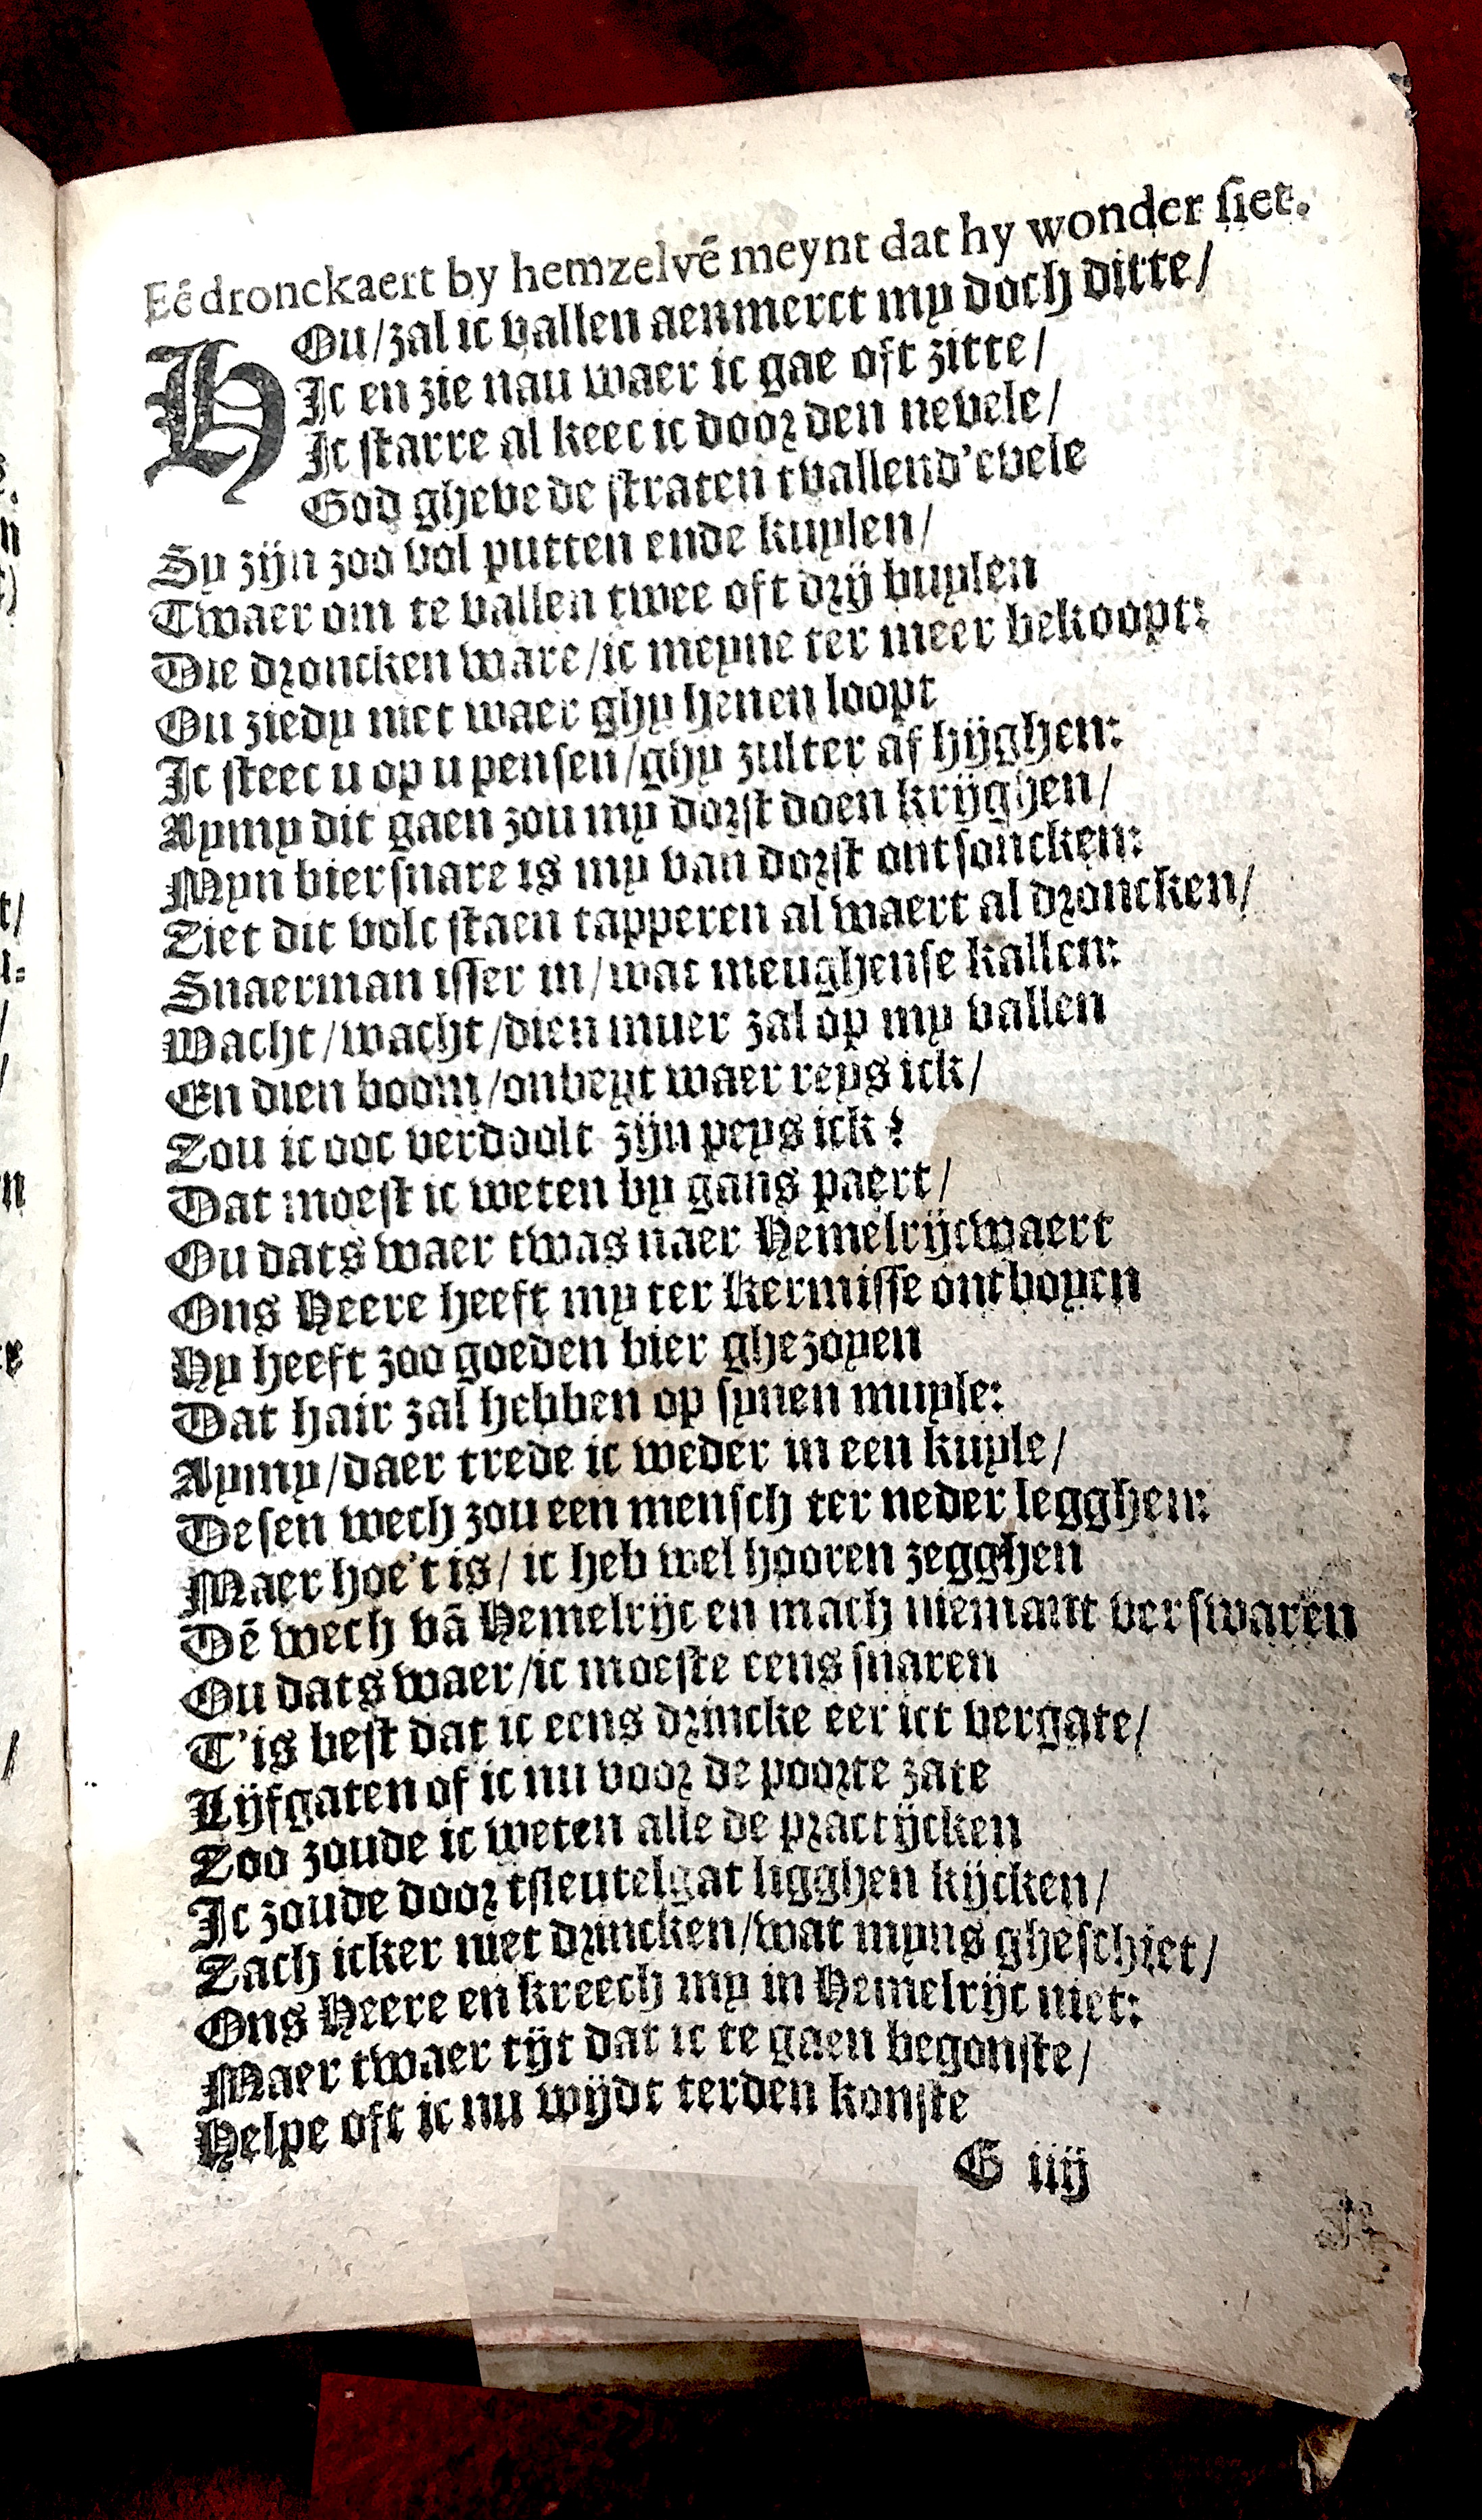 Eē dronckaert by hemzelvē meynt dat hy wonder ſiet.
HOu/zal ic vallen aenmerct my doch ditte/
Ic en zie nau waer ic gae oft zitte/
Ic ſtarre al keec ic door den nevele/
God gheve de ſtraten tvallend'evele
Sy zijn zoo vol putten ende kuylen/
Twaer om te vallen twee oft drij buylen
Die droncken ware/ic meyne ter meer bekoopt:
Ou ziedy niet waer ghy henen loopt
Ic ſteec u op u penſen/ghy zulter af hijghen:
Aymy dit gaen zou my dorſt doen krijghen/
Myn bierſnare is my van dorſt ontſoncken:
Ziet dit volc ſtaen tapperen al waert al droncken/
Snaerman iſſer in/wat meughenſe kallen:
Wacht/wacht/dien muer zal op my vallen
En dien boom/onbeyt waer reys ick/
Zou ic ooc verdoolt zijn peys ick?
Dat moeſt ic weten by gans paert/
Ou dats waer twas naer Hemelrijcwaert
Ons Heere heeft my ter kermiſſe ontboyen
Hy heeft zoo goeden bier ghezoyen
Dat hair zal hebben op ſynen muyle:
Aymy/daer trede ic weder in een kuyle/
Deſen wech zou een menſch ter neder legghen:
Maer hoe't is/ ic heb wel hooren zegghen
Dē wech vā Hemelrijc en mach niemant verſwaren
Ou dats waer/ic moeſte eens ſnaren
T'is beſt dat ic eens drincke eer ict vergate/
Lijfgaten of ic nu voor de poorte zate
Zoo zoude ic weten alle de practijcken
Ic zoude door tſleutelgat ligghen kijcken/
Zach icker niet drincken/wat myns gheſchiet/
Ons Heere en kreech my in Hemelrijc niet:
Maer twaer tijt dat ic te gaen begonſte/
Helpe oft ic nu wijdt terden konſte
G iij